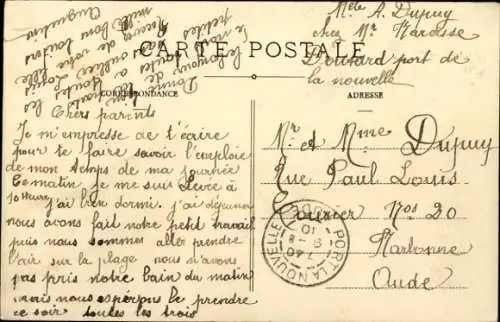 Mlle A. Dupuy
chez Mr Narasse
Douard port de
la nouvelle
CARTE POSTALE
CORRESPONDANCE
ADRESSE
Chers parents
Je m'empresse de t'écrire
pour te faire savoir l'emploie
de mon temps de ma journée
Ce matin je me suis levée à
j'ai bien dormi. j'ai déjeuner
nous avons fait notre petit travail
puis nous sommes aller prendre
l'air sur la plage nous n'avons
pas pris notre bain du matin
mais nous espérons le prendre
ce soir toutes les trois
Donne
le bonjour de
a toutes
de votre
mille bons baisers
Augustine
Mr et Mme Dupuy
Rue Paul Louis
Courier Nos 20
Narbonne
Aude
PORT-LA NOUVELLE
AUDE